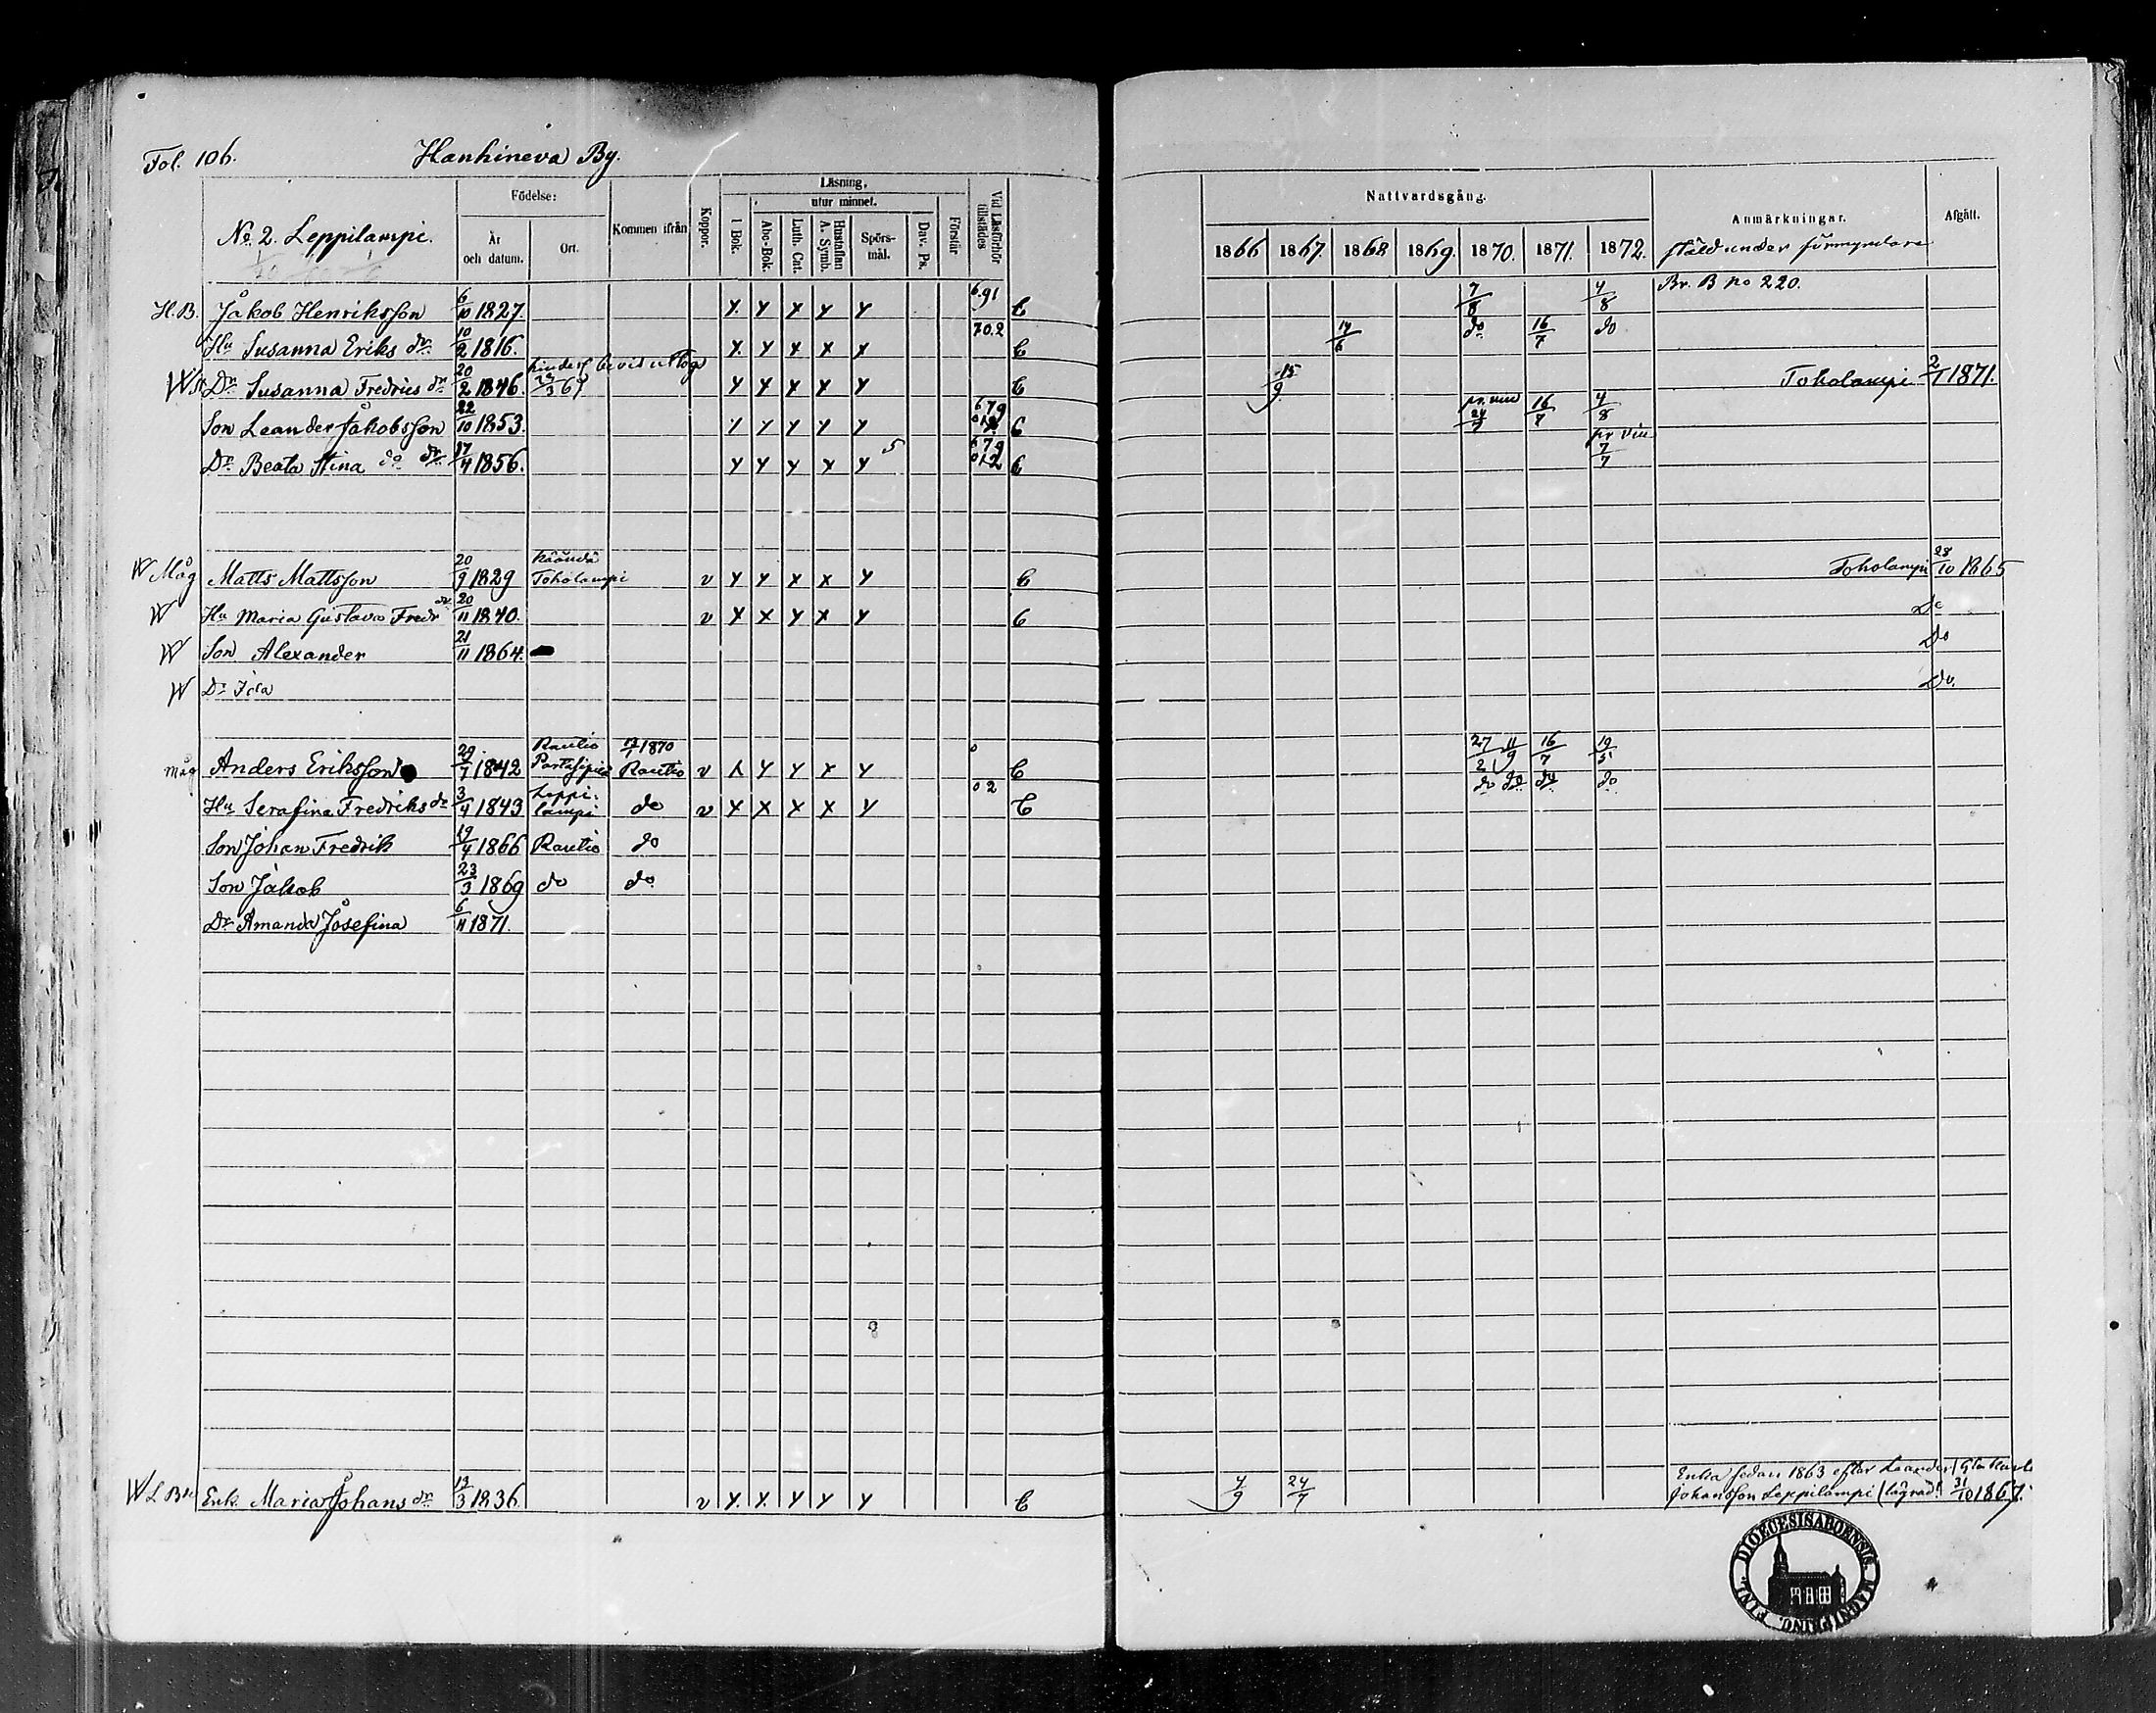 Fol. 106. Hanhineva By.
No. 2. Leppilampi.
Födelse:
År och datum.
Ort.
Kommen ifrån
Koppor.
Läsning,
utur minnet.
I Bok.
Abo-Bok.
Luth. Cat.
Hustaflan A. Symb.
Spörs-mål.
Dav. Ps.
Förstår
Vid Läsförhör tillstädes
Nattvardsgång.
1866 1867. 1868 1869. 1870. 1871. 1872.
Anmärkningar.
Afgått.
ståld under förmyndare
H.B. Jakob Henriksson 6/10 1827. y. y x y y 6.91 C 7/8 4/8 Br. B no 220.
Hu Susanna Eriks dr. 10/2 1816. x. y x x x 70.2 C 14/6 do 16/7 do
Dr Susanna Fredrics dr 20/2 1846. hindersbevis uttog 22/3 67 y y x x y C 15/9 Toholampi 2/1 1871.
Son Leander Jakobsson 22/10 1853. y y y y y 679 C pr. vice 24/7 16/7 4/8
Dr Beata Stina do dr. 17/4 1856. y y y x y 5 679 012 C pr vice 7/7
W Måg Matts Mattsson 20/9 1829 Toholampi v y y x x y C Toholampi 28/10 1865
W Hu Maria Gustava Fredr dr 20/11 1840. v x x y x y C Do
W Son Alexander 21/11 1864. Do
W Dr Ida Do.
måg Anders Eriksson 29/7 1842 Rautio 1870 Rautio v x y y x y 0 C 27/2 11/9 16/7 19/5
Hu Serafina Fredriks dr 3/4 1843 Leppi-lampi do v x x x x y 02 C do do do do
Son Johan Fredrik 19/4 1866 Rautio do
Son Jakob 23/3 1869 do do
Dr Amanda Josefina 6/11 1871.
W Enk. Maria Johans dr 13/3 1836. v y. x. y y y C 4/9 24/7 Enka sedan 1863 efter Leander
Johansson Leppilampi 31/10 1867.
DIOECESIS ABOENSIS. MAGNI PRINC. FINL.